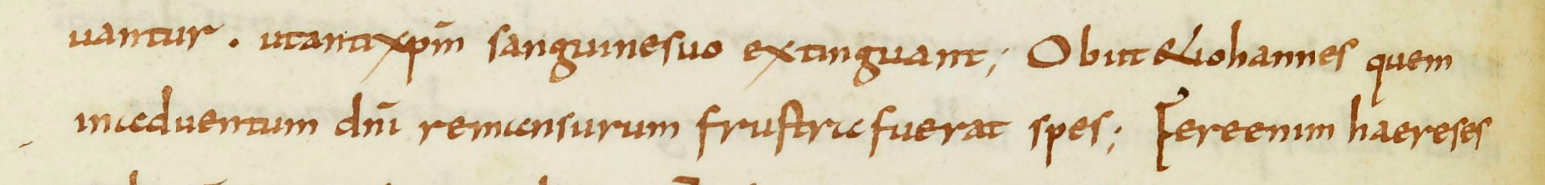 uantur . utantixpm̄ sanguinesuo extinguant; Obiit&iohannes quem
inaduentum dn̄i remansurum frustra fuerat spes; Fereenim haereses